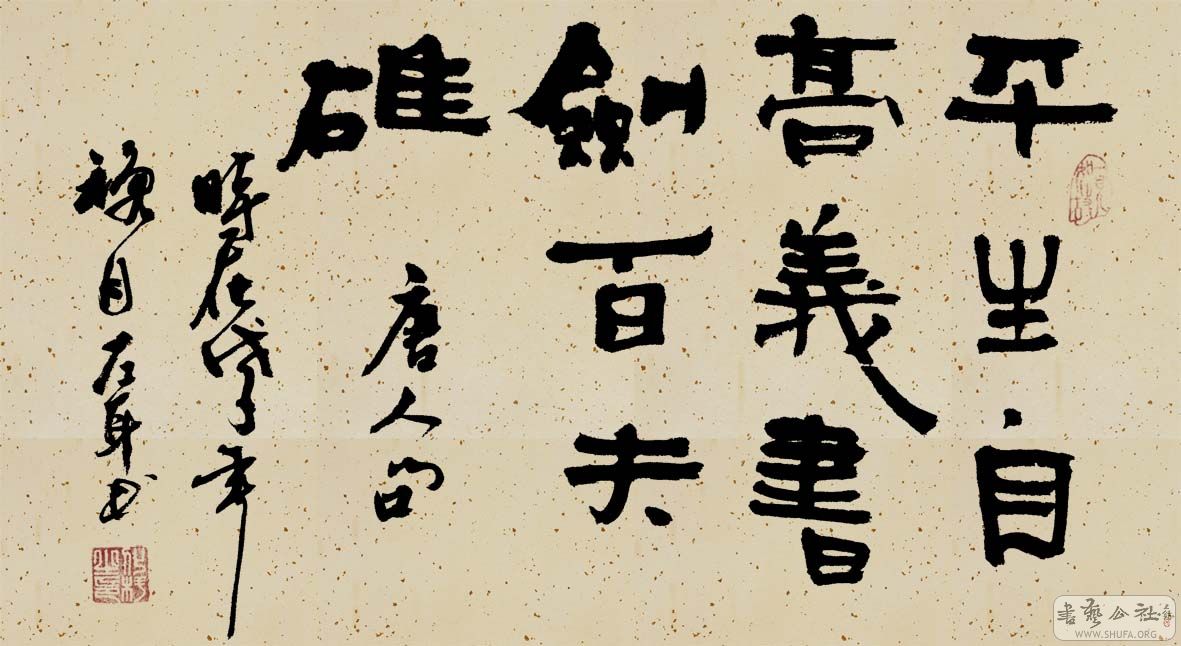 平生自
高義書
劍百夫
雄
唐人句
時在戊子年
書藝公社
WWW.SHUFA.ORG